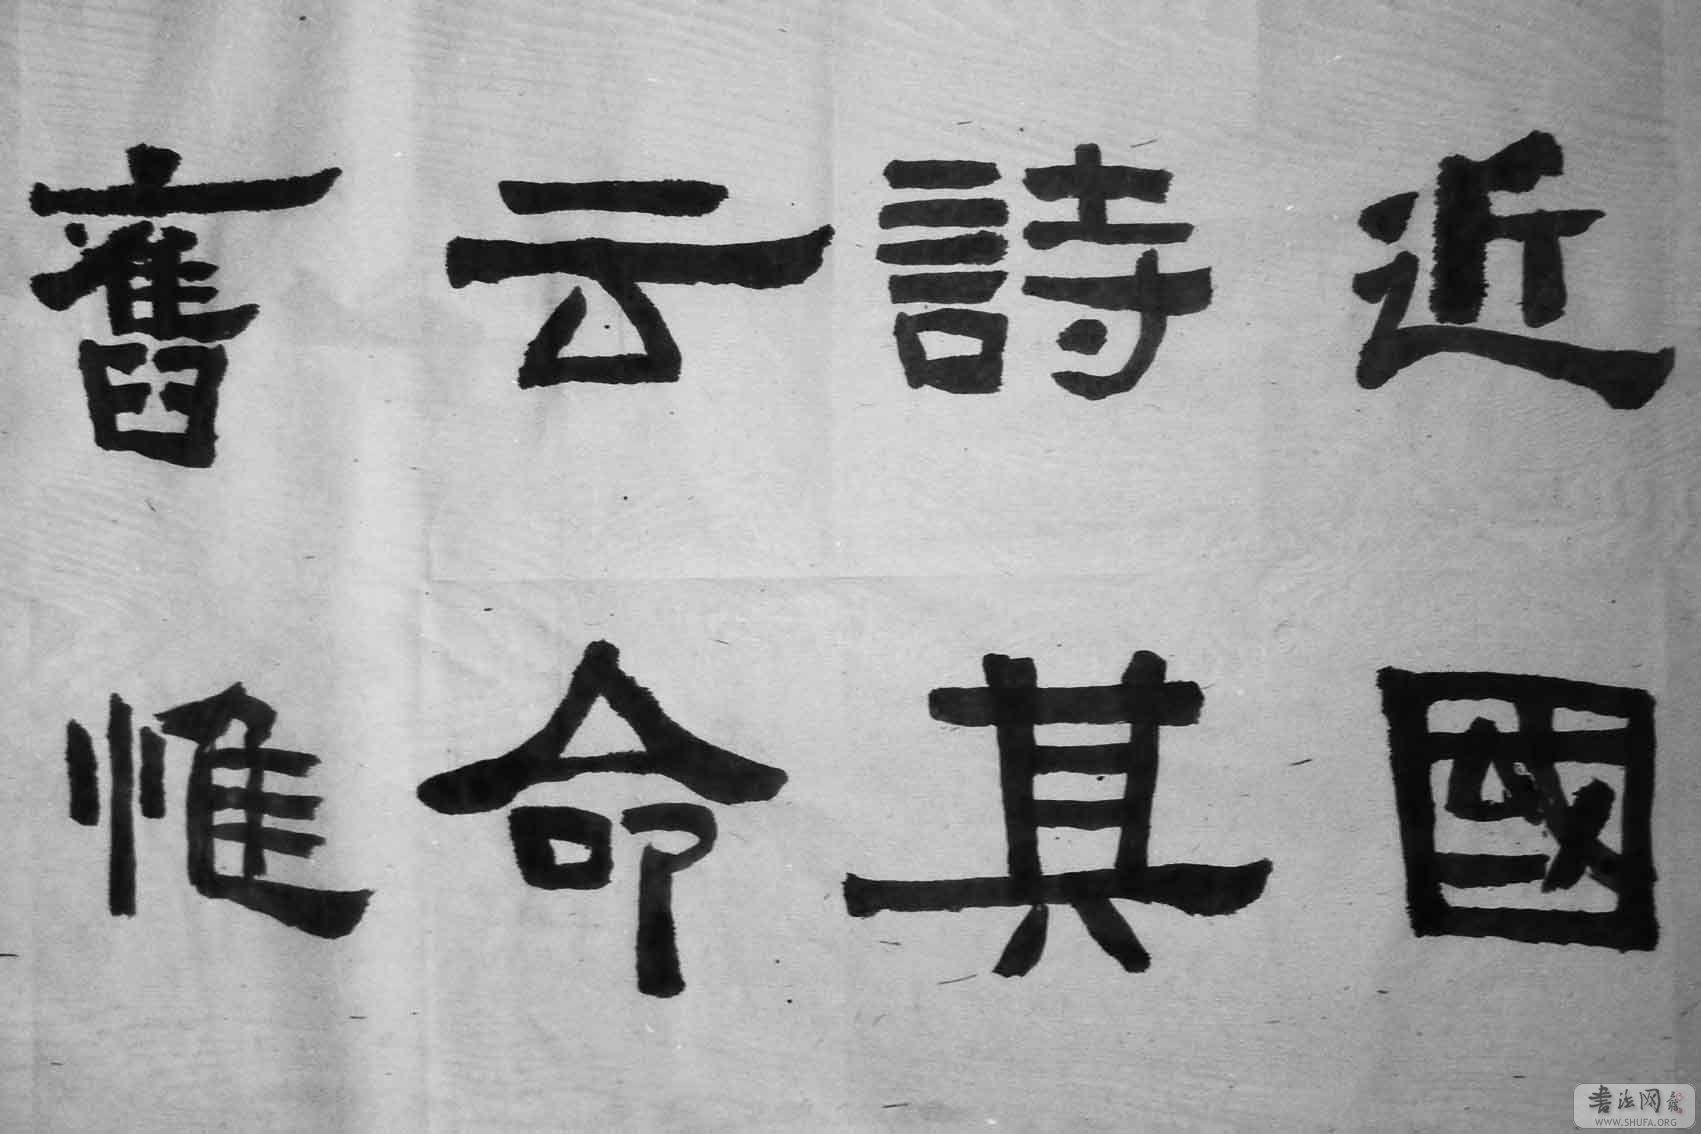 近詩云舊
國其命惟
书法网
WWW.SHUFA.ORG